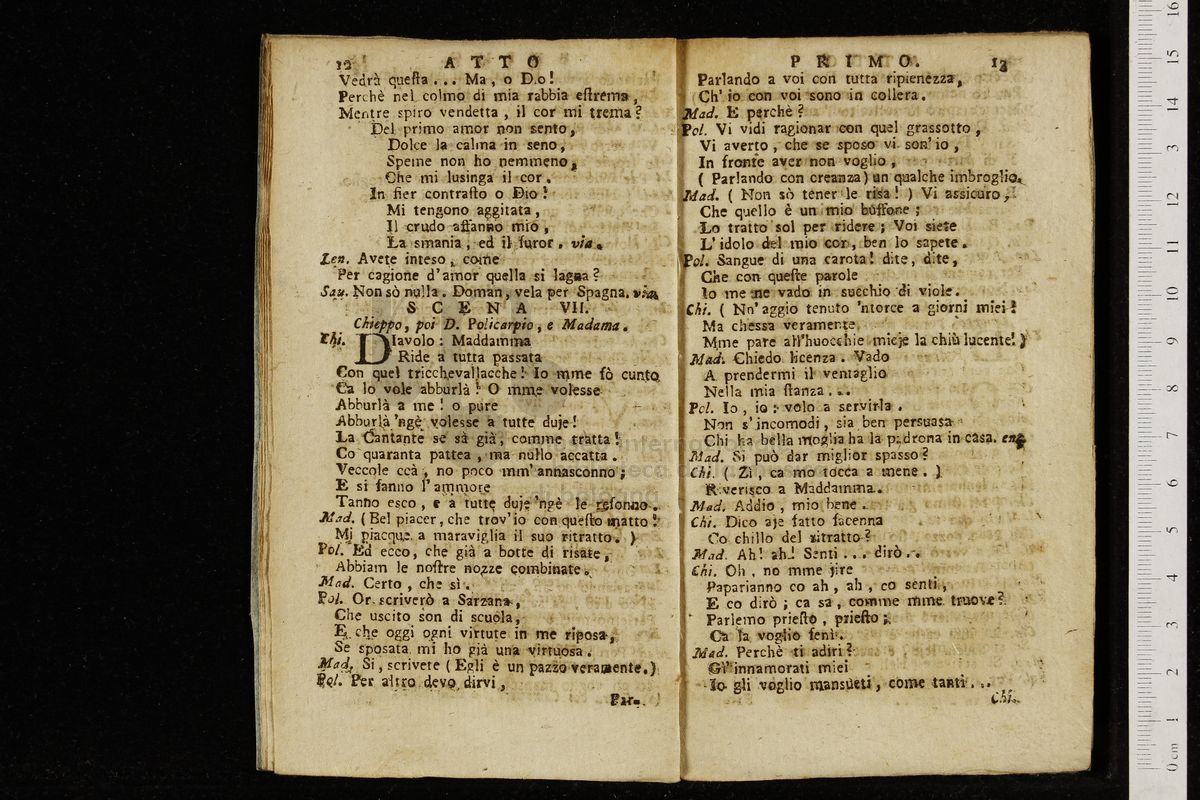 12 ATTO
Vedrà questa... Ma, o D.o!
Perchè nel colmo di mia rabbia estrema,
Mentre spiro vendetta, il cor mi trema?
Del primo amor non sento,
Dolce la calma in seno,
Speme non ho nemmeno,
Che mi lusinga il cor.
In fier contrasto o Dio!
Mi tengono aggitata,
Il crudo affanno mio,
La smania, ed il furor. via.
Len. Avete inteso, come
Per cagione d'amor quella si lagna?
Sau. Non sò nulla. Doman, vela per Spagna. via
SCENA VII.
Chieppo, poi D. Policarpio, e Madama.
Chi. DIavolo: Maddamma
Ride a tutta passata
Con quel tricchevallacche! Io mme fò cunto
Ca lo vole abburlà! O mme volesse
Abburlà a me! o pure
Abburlà 'ngè volesse a tutte duje!
La Cantante se sà già, comme tratta!
Co quaranta pattea, ma nullo accatta.
Veccole ccà, no poco mm' annasconno;
E si fanno l'ammore
Tanno esco, e a tutte duje 'ngè le resonno.
Mad. (Bel piacer, che trov'io con questo matto!
Mi piacque a maraviglia il suo ritratto.)
Pol. Ed ecco, che già a botte di risate,
Abbiam le nostre nozze combinate.
Mad. Certo, che sì.
Pol. Or scriverò a Sarzana,
Che uscito son di scuola,
E che oggi ogni virtute in me riposa,
Se sposata mi ho già una virtuosa.
Mad. Si, scrivete (Egli è un pazzo veramente.)
Pol. Per altro devo dirvi,
Par-
PRIMO. 13
Parlando a voi con tutta ripienezza,
Ch'io con voi sono in collera.
Mad. E perchè?
Pol. Vi vidi ragionar con quel grassotto,
Vi averto, che se sposo vi son'io,
In fronte aver non voglio,
(Parlando con creanza) un qualche imbroglio.
Mad. (Non sò tener le risa!) Vi assicuro,
Che quello è un mio buffone;
Lo tratto sol per ridere; Voi siete
L'idolo del mio cor, ben lo sapete.
Pol. Sangue di una carota! dite, dite,
Che con queste parole
Io me ne vado in succhio di viole.
Chi. (No' aggio tenuto 'ntorce a giorni miei!
Ma chessa veramente
Mme pare all'huocchie mieje la chiù lucente!)
Mad. Chiedo licenza. Vado
A prendermi il ventaglio
Nella mia stanza...
Pol. Io, io: volo a servirla.
Non s'incomodi, sia ben persuasa
Chi ha bella moglia ha la padrona in casa. en.
Mad. Si può dar miglior spasso?
Chi. (Zì, ca mo tocca a mene.)
Riverisco a Maddamma.
Mad. Addio, mio bene.
Chi. Dico aje fatto facenna
Co chillo del ritratto?
Mad. Ah! ah! Senti... dirò..
Chi. Oh, no mme jire
Paparianno co ah, ah, co senti,
E co dirò; ca sa, comme mme truove?
Parlemo priesto, priesto;
Ca la voglio fenì.
Mad. Perchè ti adiri?
Gl'innamorati miei
Io gli voglio mansueti, come tanti...
Chi.